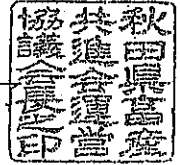 秋田県畜産
共進会運営
協議会長之印